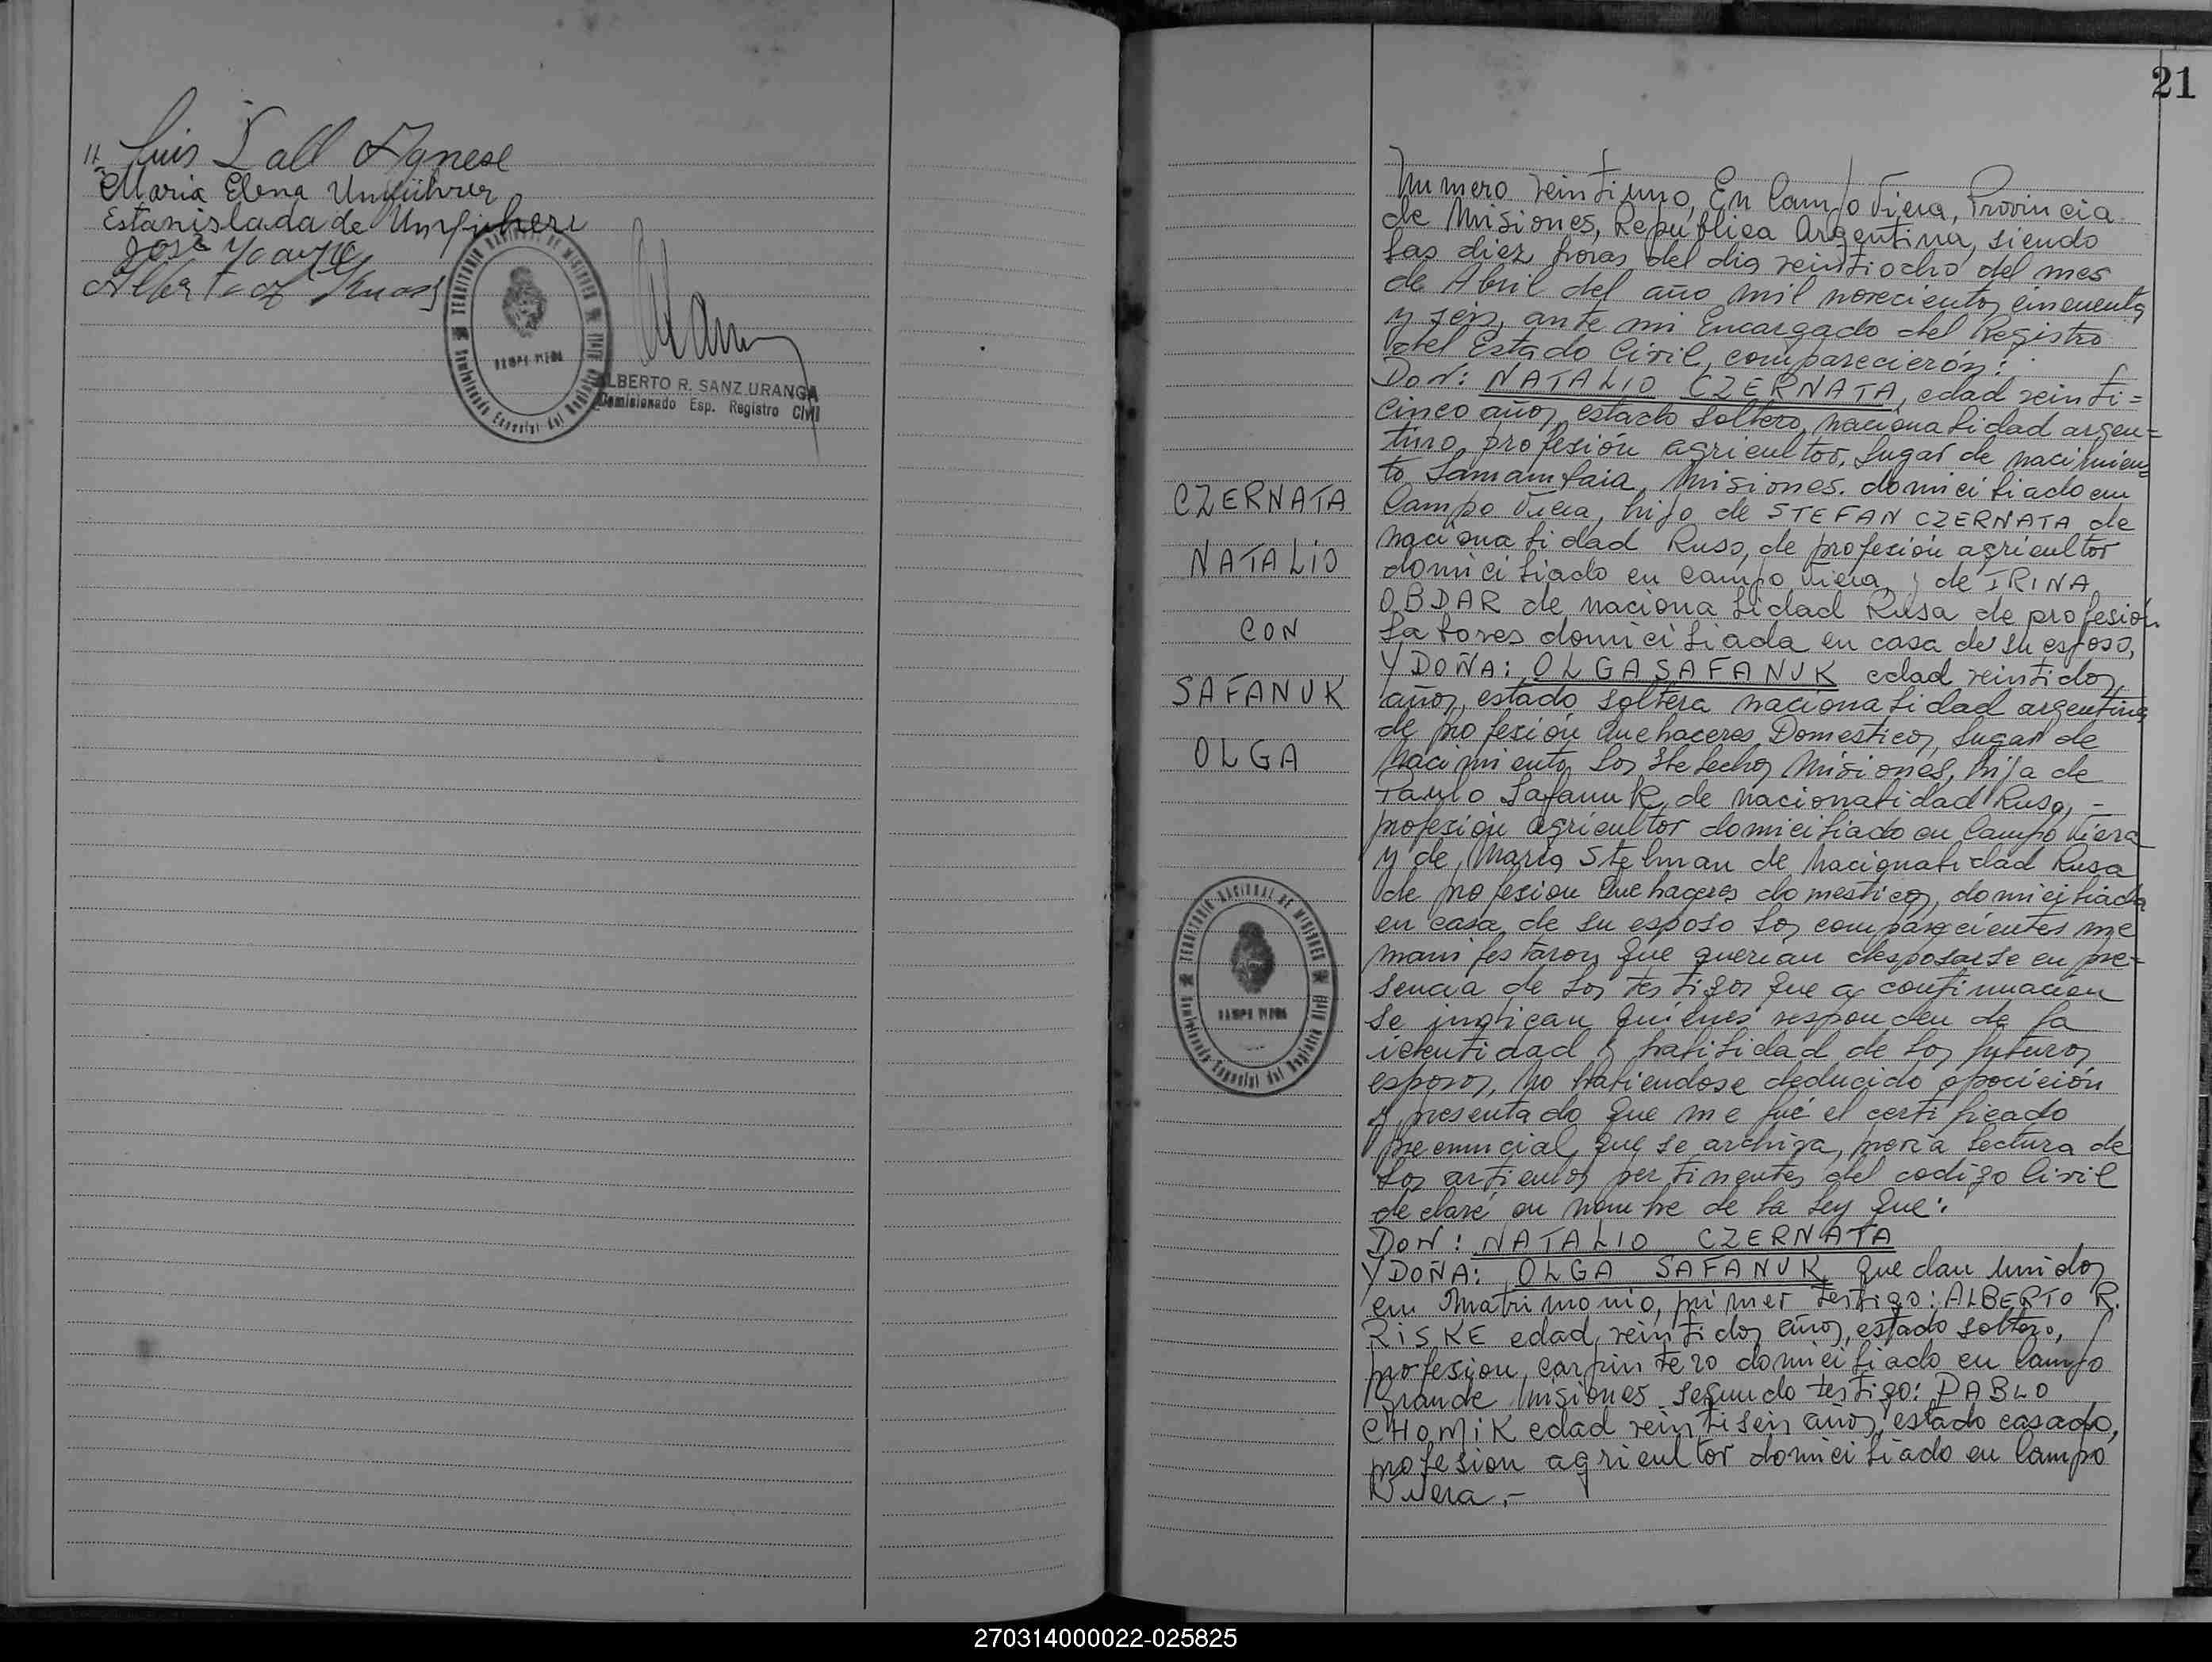 Luis Dall Agnese
Maria Elena Umführer
Estanislada de
Jose
ALBERTO R. SANZ URANGA
Comisionado Esp. Registro Civil
TERRITORIO NACIONAL DE MISIONES
CAMPO VIERA
21
CZERNATA
NATALIO
CON
SAFANUK
OLGA
TERRITORIO NACIONAL DE MISIONES
CAMPO VIERA
Numero veintiuno, En Campo Viera, Provincia
de Misiones, Republica Argentina, siendo
las diez horas del dia veintiocho del mes
de Abril del año mil novecientos cincuenta
y seis, ante mi Encargado del Registro
del Estado Civil, comparecierón:
DON: NATALIO CZERNATA, edad veinti=
cinco años, estado soltero, nacionalidad argen=
tino, profesión agricultor, lugar de nacimien=
to Samambaia, Misiones. domiciliado en
Campo Viera, hijo de STEFAN CZERNATA de
nacionalidad Ruso, de profesión agricultor
domiciliado en Campo Viera y de IRINA
OBDAR de nacionalidad Rusa de profesión
labores domiciliada en casa de su esposo,
Y DOÑA: OLGA SAFANUK edad veintidos
años, estado soltera nacionalidad argentina
de profesión Quehaceres Domesticos, lugar de
Nacimiento Los Helechos Misiones, hija de
Pablo Safanuk, de nacionalidad Ruso, -
profesión agricultor domiciliado en Campo Viera
y de Maria Stelman de Nacionalidad Rusa
de profesion Quehaceres domesticos, domiciliada
en casa de su esposo los comparecientes me
manifestaron que querian desposarse en pre=
sencia de los testigos que a continuacion
se indican quienes responden de la
identidad y habilidad de los futuros
esposos, No habiendose deducido oposición
y presentado que me fué el certificado
prenuncial que se archiva, previa lectura de
los articulos pertinentes del codigo Civil
declaré en nombre de la ley que:
DON: NATALIO CZERNATA
Y DOÑA: OLGA SAFANUK, quedan unidos
en Matrimonio, primer testigo: ALBERTO R.
RISKE edad veintidos años, estado soltero,
profesion carpintero domiciliado en Campo
Grande Misiones segundo testigo: PABLO
CHOMIK edad veintiseis años, estado casado,
profesion agricultor domiciliado en Campo
Viera.-
270314000022-025825